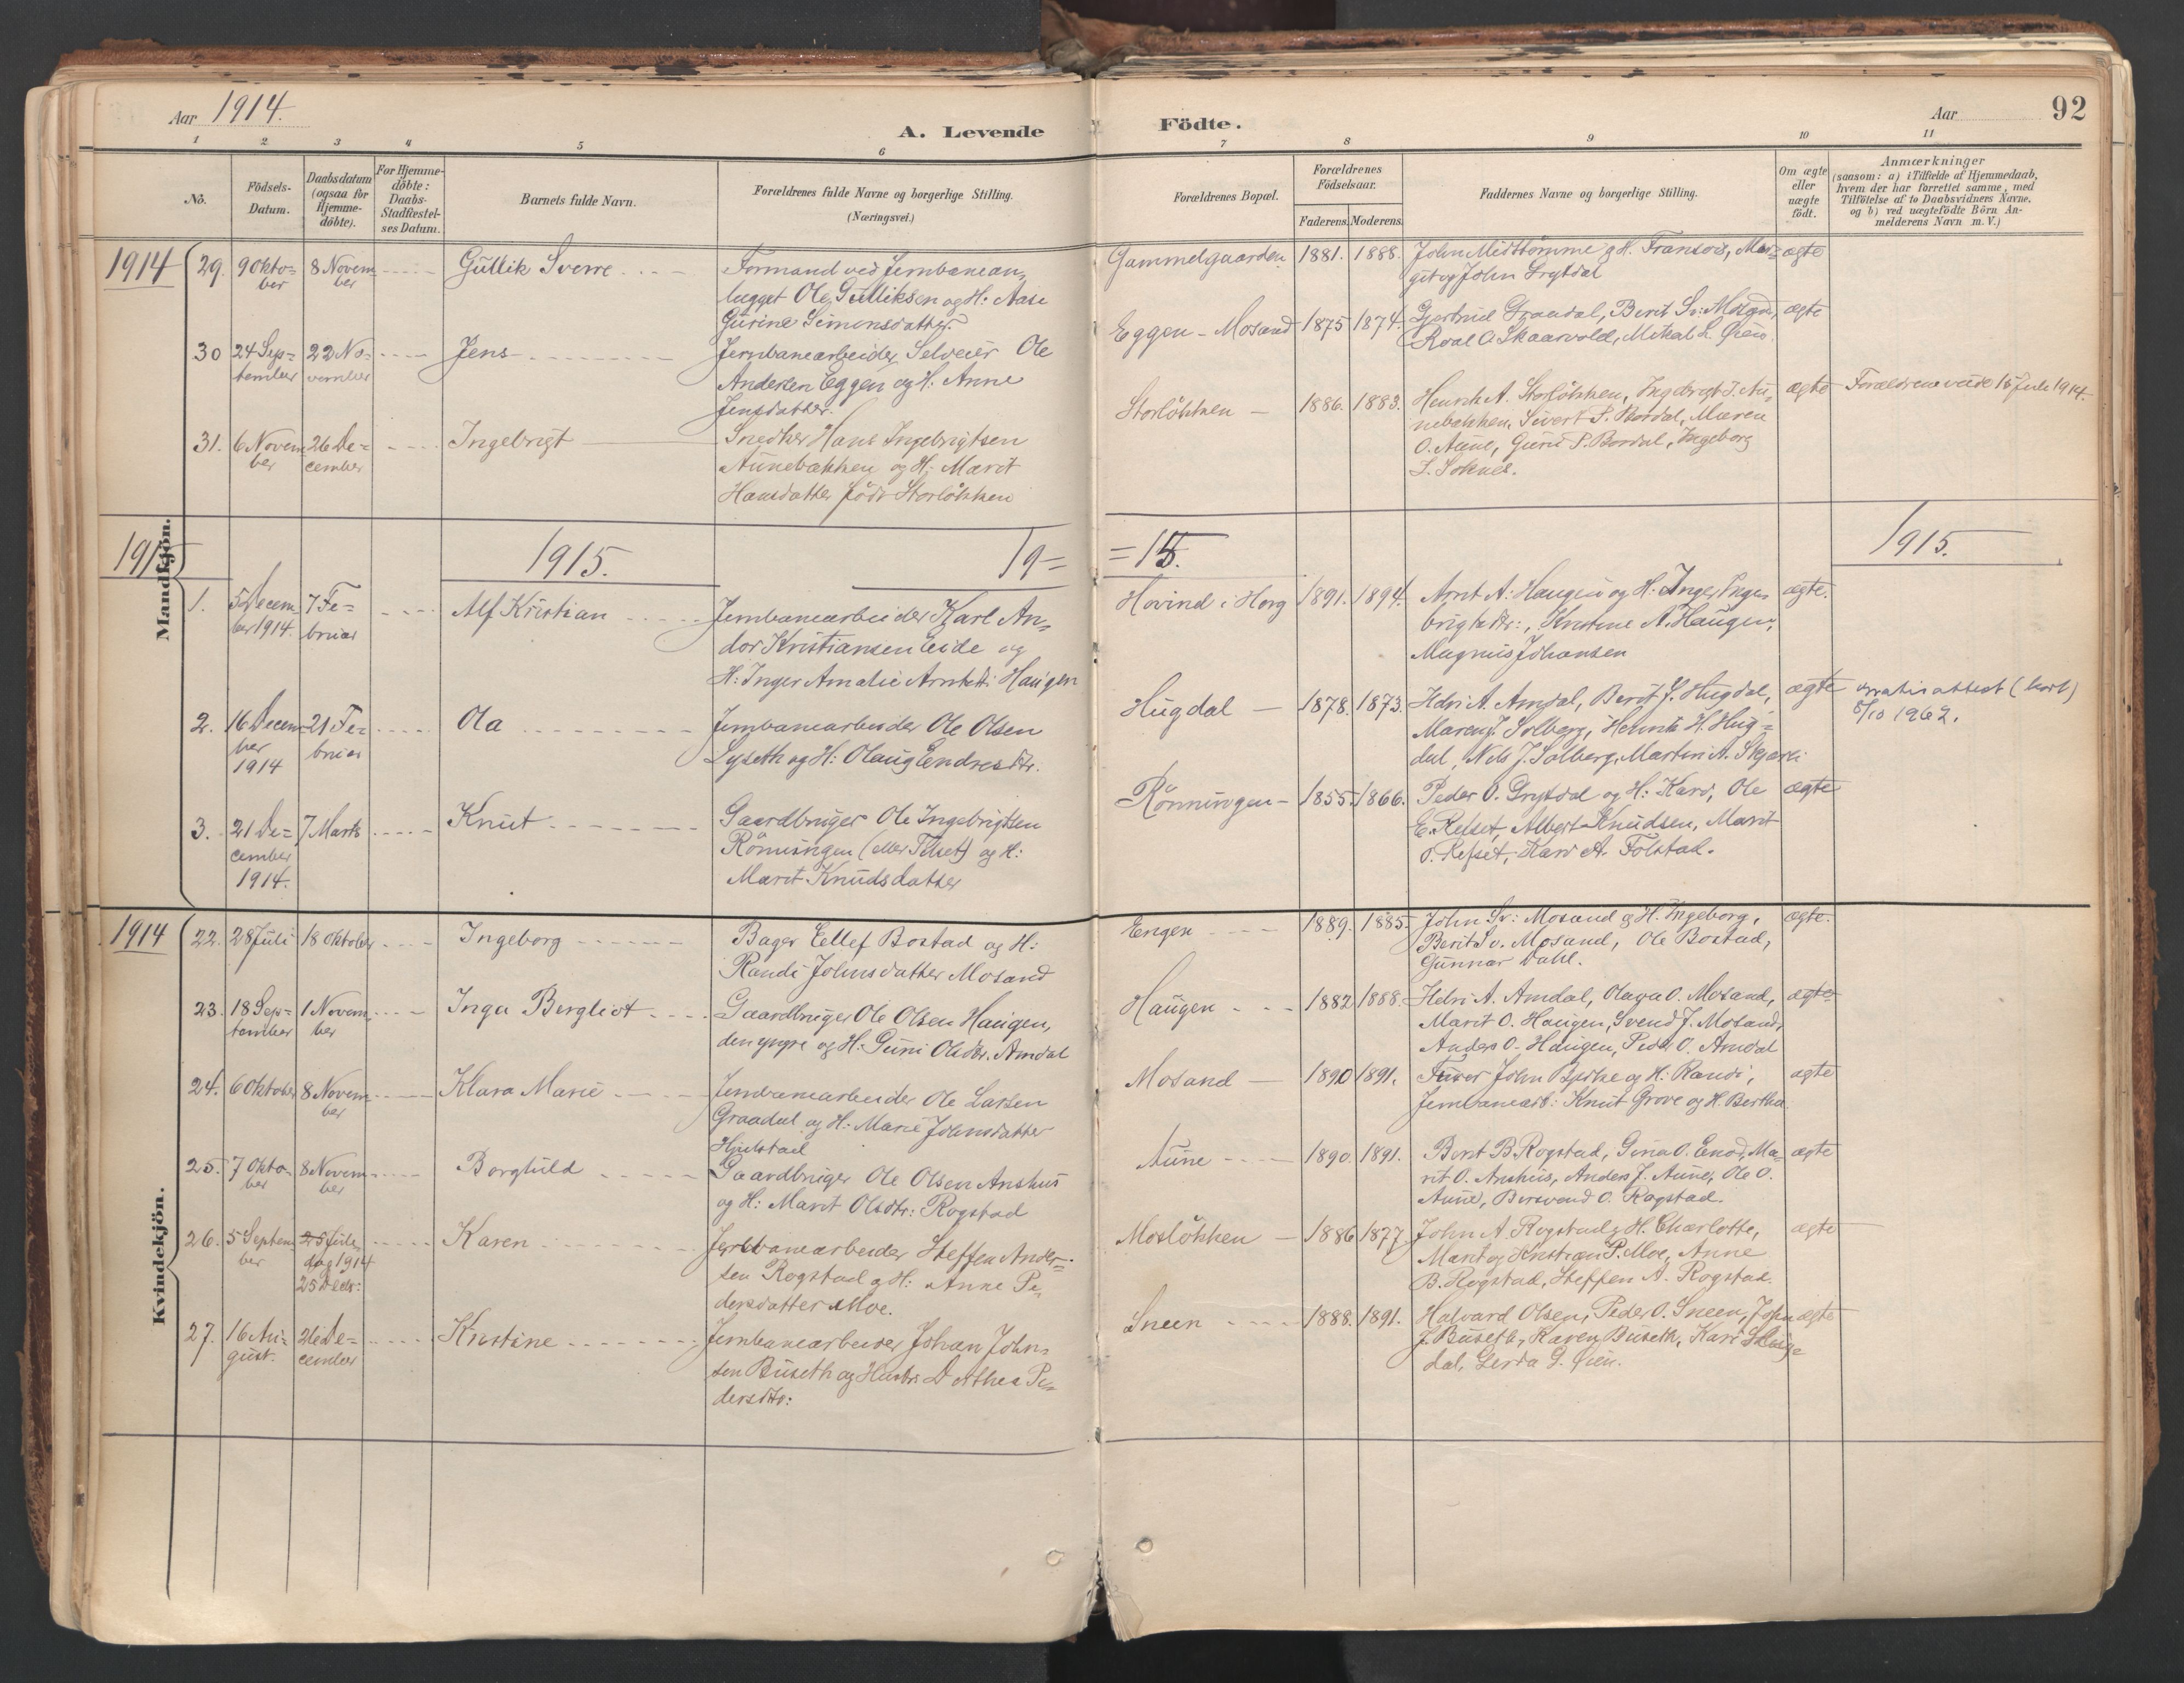 Aar 1914.
A. Levende Födte.
Aar 92
1 2 3 4 5 6 7 8 9 10 11
Nö.
Födsels-Datum.
Daabsdatum (ogsaa for Hjemme-döbte).
For Hjemme-döbte: Daabs-Stadfæstel-ses Datum.
Barnets fulde Navn.
Forældrenes fulde Navne og borgerlige Stilling.
(Næringsvei.)
Forældrenes Bopæl.
Forældrenes Födselsaar.
Faderens. Moderens.
Faddernes Navne og borgerlige Stilling.
Om ægte eller uægte födt.
Anmærkninger
(saasom: a) i Tilfælde af Hjemmedaab,
hvem der har forrettet samme, med
Tilföielse af to Daabsvidners Navne.
og b) ved uægtefödte Börn An-
melderens Navn m. V.)
Mandkjön.
1914
29. 9 Okto-ber 8 Novem-ber Gullik Sverre
Formand ved Jernbanean-
lægget Ole Gulliksen og H: Aase
Gurine Simonsdatter.
Gammelgaarden 1881. 1888.
John Midttömme og H. Fransois, Mar-
git og John Drygtdal
ægte
30 24 Sep-tember 22 No-vember Jens
Jernbanearbeider, Selveier Ole
Andersen Eggen og H. Anne
Jensdatter.
Eggen - Mosand 1875 1874.
Gjertrud Graadal, Berit Sv: Mosand,
Roal O. Skaarvold, Mikal L. Öien.
ægte
31. 6 Novem-ber 26 De-cember Ingebrigt
Snedker Hans Ingebrigtsen
Aunebakken og H: Marit
Hansdatter född Storlökken
Storlökken 1886. 1883.
Henrik A. Storlökken, Ingebrigt J. Au-
nebakken, Sivert P. Bordal, Maren
O. Aune, Guru P. Bordal, Ingeborg
L. Soknes.
ægte
Forældrene viede 15 Juli 1914.
1915 1915. 19= =15. 1915.
1. 5 Decem-ber 1914. 7 Fe-bruar Alf Kristian
Jernbanearbeider Karl An-
dor Kristiansen Eide og
H: Inger Amalie Arntsdtr Haugen
Hovind i Horg 1891. 1894.
Arnt A. Haugen og H. Inger Inge-
brigtsdtr:, Kristine A. Haugen,
Magnus Johansen
ægte.
2. 16 Decem-ber 1914 21 Fe-bruar Ola
Jernbanearbeider Ole Olsen
Lyseth og H: Olaug Endresdtr.
Hugdal 1878. 1873.
Hdri A. Amdal, Berit L. Hugdal,
Maren J. Solberg, Henrik H. Hug-
dal, Nils J. Solberg, Martin A. Skjærli
ægte
gratis attest (kort)
8/10 1962.
3. 21 De-cember 1914. 7 Marts Knut
Gaardbruger Ole Ingebrigtsen
Rönningen (eller Tilset) og H:
Marit Knudsdatter
Rönningen 1855. 1866.
Peder O. Drytdal og H: Kari, Ole
E. Refset, Albert Knudsen, Marit
O. Refset, Kari A. Folstad.
ægte
Kvindekjön.
1914
22. 28 Juli 18 Oktober Ingeborg
Bager Ellef Bostad og H:
Randi Johnsdatter Mosand
Engen 1889. 1885.
John Sv: Mosand og H. Ingeborg,
Berit Sv. Mosand, Ole Bostad,
Gunnar Dahl.
ægte.
23. 18 Sep-tember 1 Novem-ber Inga Bergliot
Gaardbruger Ole Olsen Haugen,
den yngre og H: Guri Olsdtr. Amdal
Haugen 1882 1888.
Hdri A. Amdal, Olava O. Mosand,
Marit O. Haugen, Svend J. Mosand,
Anders O. Haugen, Peder O. Amdal
ægte
24. 6 Oktober 8 Novem-ber Klara Marie
Jernbanearbeider Ole Larsen
Graadal og H: Marie Johnsdatter
Hjulstad
Mosand 1890 1891.
John Bjerke og H: Randi,
Jernbanearb: Knut Grove og H. Bertha
ægte
25. 7 Okto-ber 8 Novem-ber Borghild
Gaardbruger Ole Olsen Anshus
og H: Marit Olsdtr: Rogstad
Aune 1890. 1891.
Berit B. Rogstad, Gina O. Enod, Ma-
rit O. Anshus, Anders J. Aune, Ole O.
Aune, Bersvend O. Rogstad.
ægte
26. 5 Septem-ber 25 Jule-dag 1914 25 Decbr: Karen
Jernbanearbeider Steffen Ander-
sen Rogstad og H: Anne Pe-
dersdatter Moe.
Moslökken 1886 1877.
John A. Rogstad og H. Charlotte,
Marit og Kristian P. Moe, Anne
B. Rogstad, Steffen A. Rogstad.
ægte
27. 16 Au-gust. 26 De-cember Kristine
Jernbanearbeider Johan John-
sen Buseth og Hustr: Dorthea Pe-
dersdtr:
Sneen 1888. 1891.
Halvard Olsen, Peder O. Sneen, John
J. Buseth, Karen Buseth, Kari
dal, Gerda G. Öien.
ægte